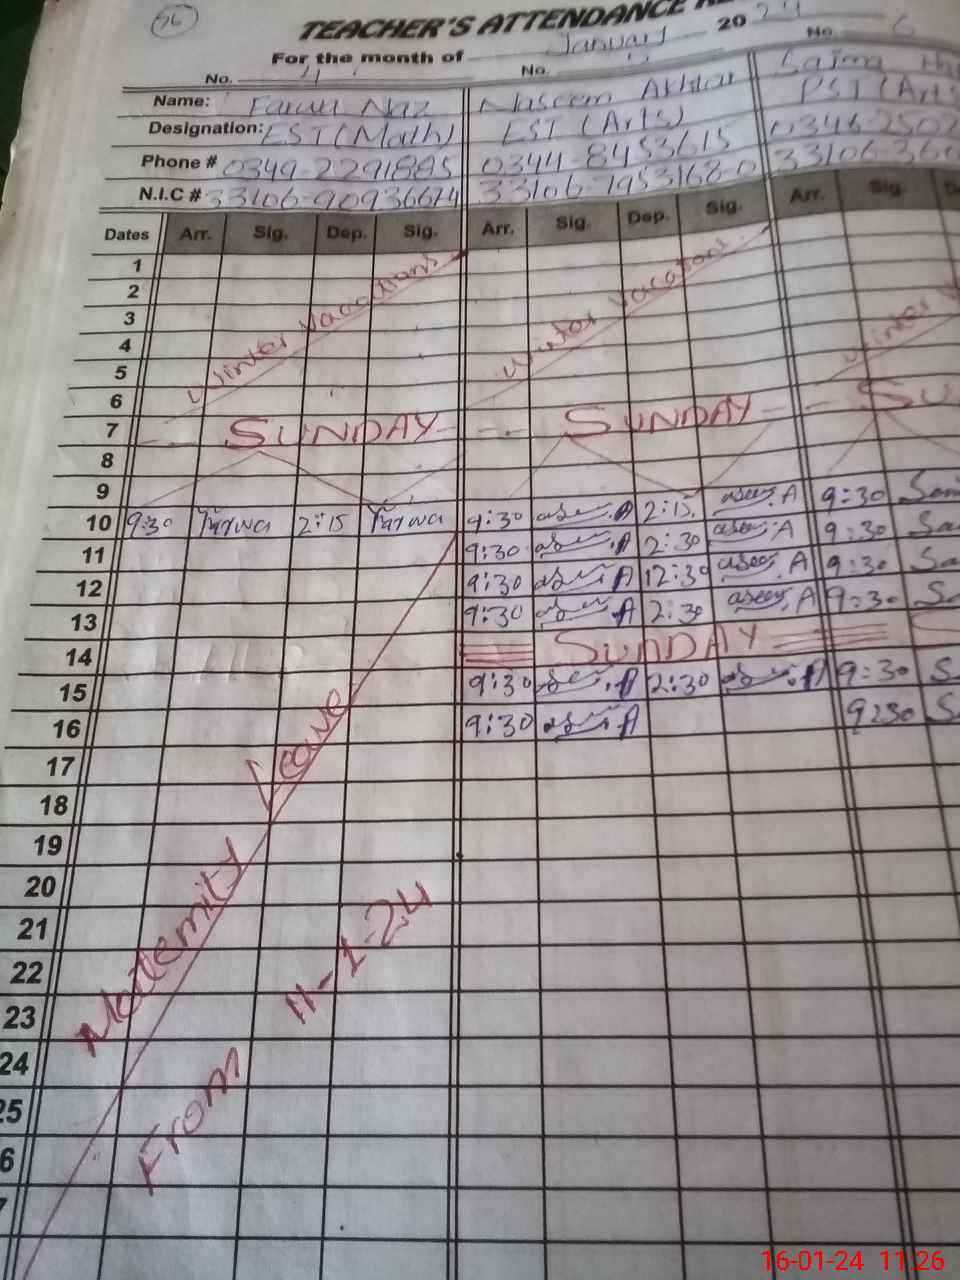 76
TEACHER'S ATTENDANCE RE
For the month of January 2024
No. 4 No. 5 No. 6
Name: Farwa Naz Naseem Akhtar Saima
Designation: EST (Math) EST (Arts) PST (Arts
Phone # 0349-2291885 0344-8453615 0346-2502
N.I.C # 33106-9093667-4 33106-1953168-0 33106-360
Dates Arr. Sig. Dep. Sig. Arr. Sig. Dep. Sig. Arr. Sig. D
1
2
3
4
5
6
Winter Vacations Winter Vacations Winter V
7 SUNDAY SUNDAY SU
8
9
10 9:30 2:15 9:30 A 2:15 A 9:30
11 9:30 A 2:30 A 9:30 Sa
12 9:30 A 12:30 A 9:30 Sa
13 9:30 A 2:30 A 9:30 Sa
14 SUNDAY S
15 9:30 A 2:30 A 9:30 S
16 9:30 A 9:30 S
17
18
19
20
21
22
23
24
25
6
7
Maternity Leave
From 11-1-24
16-01-24 11:26